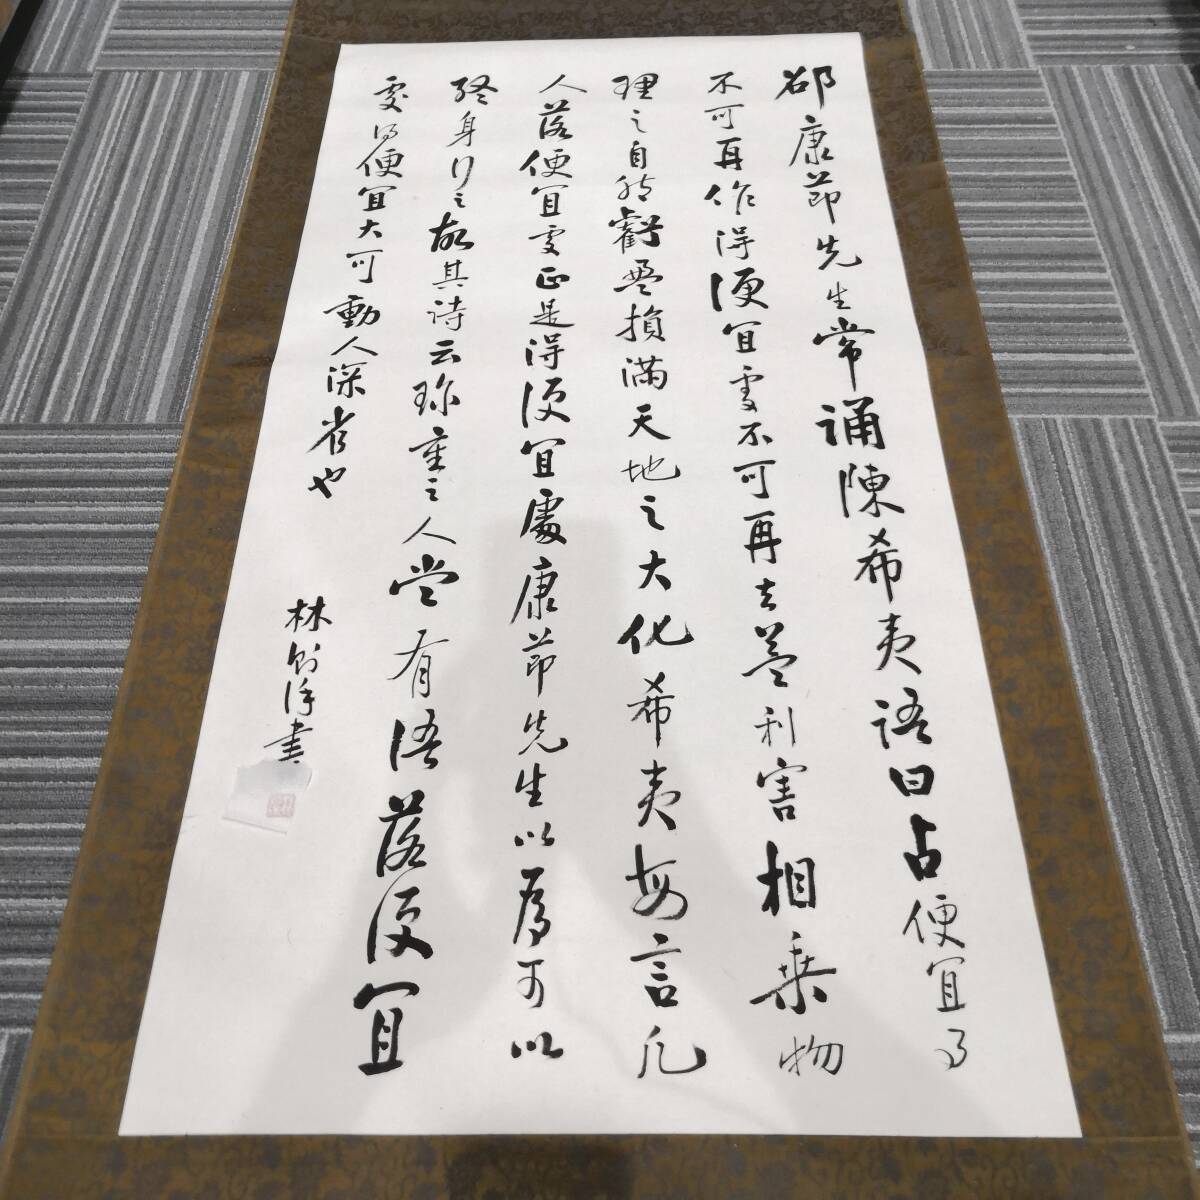 邵康節先生常誦陳希夷語曰占便宜事
不可再作得便宜處不可再去蓋利害相乘物
理之自然虧盈損滿天地之大化希夷每言凡
人落便宜處正是得便宜處康節先生以爲可以
終身行之故其诗云珍重之人尝有語落便宜
處得便宜大可動人深省也
林則徐書